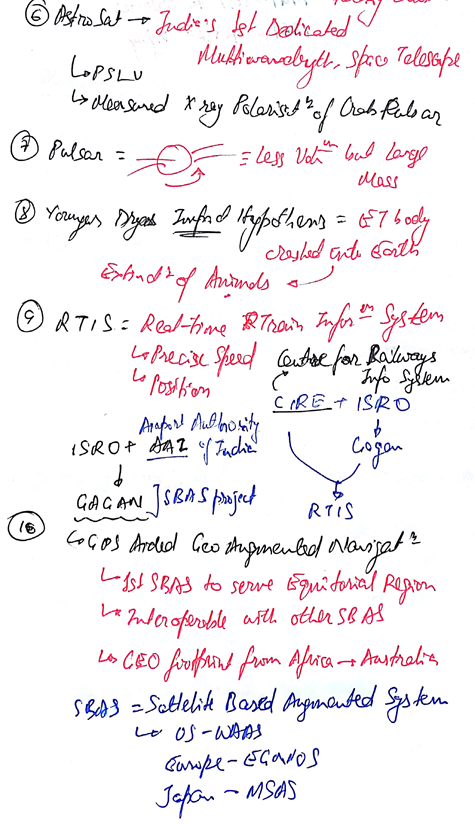 ⑥ AstroSat → India's 1st Dedicated
Multiwavelength, Space Telescope
↳ PSLV
↳ Measured X ray Polarisatⁿ of Crab Pulsar
⑦ Pulsar = = Less Volᵘᵐ but Large
Mass
⑧ Younger Dryas Impact Hypothesis = ET body
crashed into Earth
Extinctⁿ of Animals ←
⑨ RTIS = Real-time Train Inforᵐ System
↳ Precise Speed
↳ Position
Centre for Railways
Info System
CIRE + ISRO
Airport Authority
ISRO + AAI of India
Gagan
GAGAN ] SBAS project
RTIS
⑩
↳ GPS Aided Geo Augmented Navigatⁿ
↳ 1st SBAS to serve Equitorial Region
↳ Interoperable with other SBAS
↳ GEO footprint from Africa → Australia
SBAS = Sattelite Based Augmented System
↳ US - WAAS
Europe - EGNOS
Japan - MSAS